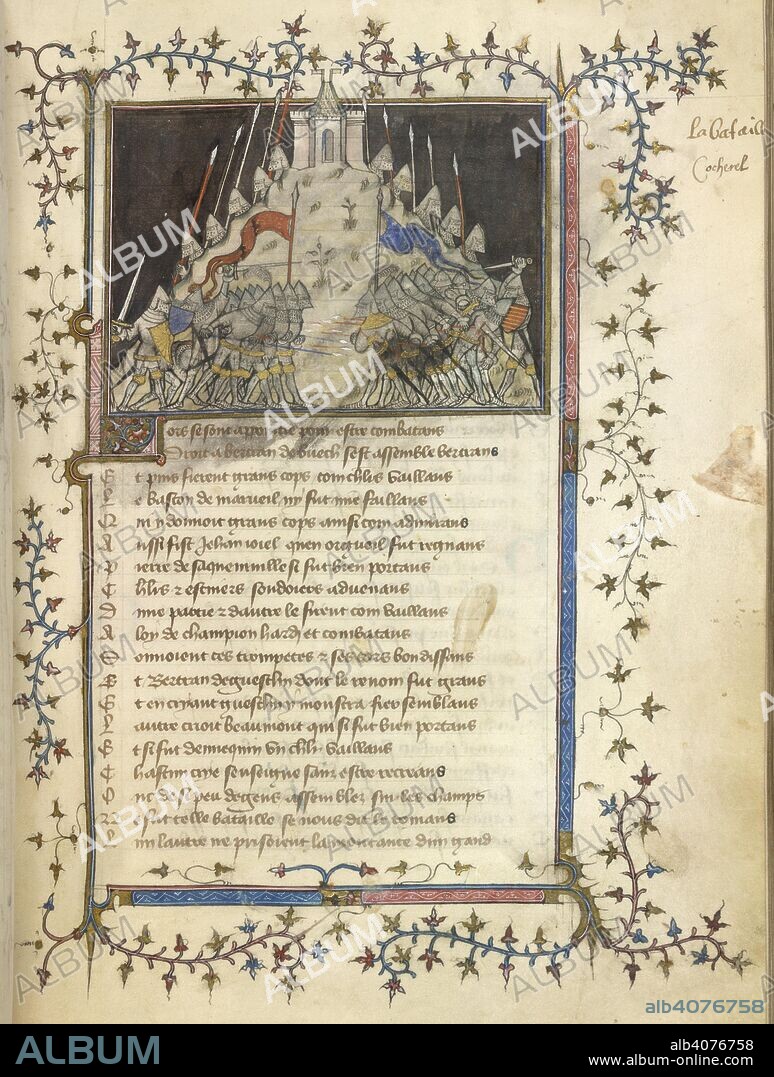 la bataille
Cocherel
ors se sont appointie pour estre combatans
Droit a bertran de buech sest assemble bertrans
Et puis fierent grans cops com chlrs vaillans
Le bascon de marueil ny fut mie faillans
Ains y donnoit grans cops ainsi com admirans
Aussi fist Jehan iouel quen orgueil fut regnans
Pierre de saquenville si fut bien portans
Chlrs et escuiers soudoiers advenans
Dune partie et dautre le firent com vaillans
A loy de champion hardy et combatans
Sonnoient ces trompetes et ses cors bondissans
Et Bertran de guesclin dont le renom fut grans
Et en criant guesclin y monstra fiers semblans
Lautre crioit beaumont qui si fut bien portans
Et si fut dennequin un chlr vaillans
Chascun crie senseigne sans estre recreans
Onc de si peu de gens assembler sur les champs
Ne fut telle bataille se nous dit le romans
un lautre ne prisoient la montance dun gand
ALBUM
alb4076758
ALBUM
alb4076758
www.album-online.com